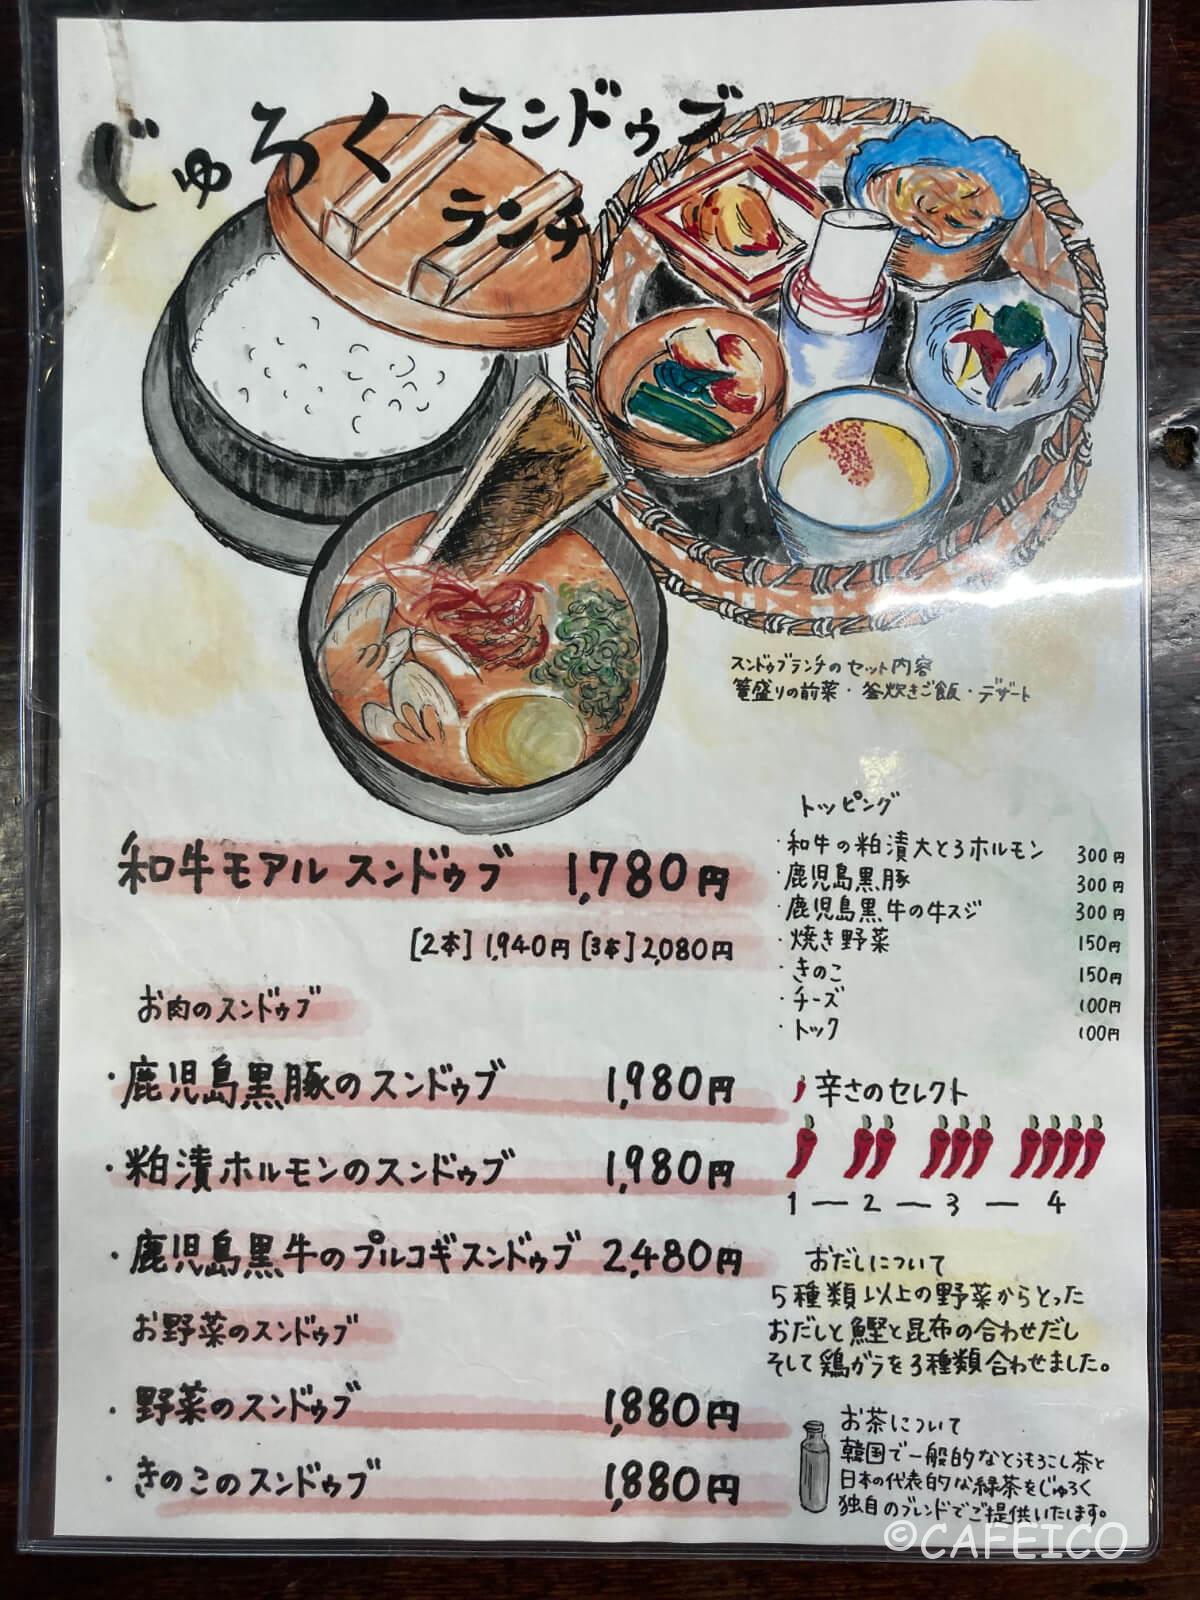 じゅろく スンドゥブ
ランチ
スンドゥブランチのセット内容
篭盛りの前菜・釜炊きご飯・デザート
和牛モアル スンドゥブ 1,780円
[2本] 1,940円 [3本] 2,080円
お肉のスンドゥブ
・鹿児島黒豚のスンドゥブ 1,980円
・粕漬ホルモンのスンドゥブ 1,980円
・鹿児島黒牛のプルコギスンドゥブ 2,480円
お野菜のスンドゥブ
・野菜のスンドゥブ 1,880円
・きのこのスンドゥブ 1,880円
トッピング
・和牛の粕漬大とろホルモン 300円
・鹿児島黒豚 300円
・鹿児島黒牛の牛スジ 300円
・焼き野菜 150円
・きのこ 150円
・チーズ 100円
・トック 100円
辛さのセレクト
1 ー 2 ー 3 ー 4
おだしについて
5種類以上の野菜からとった
おだしと鰹と昆布の合わせだし
そして鶏ガラを3種類合わせました。
お茶について
韓国で一般的なとうもろこし茶と
日本の代表的な緑茶をじゅろく
独自のブレンドでご提供いたします。
©CAFEICO